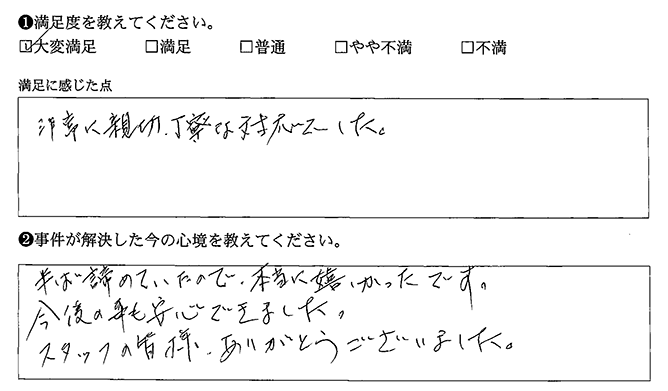 ❶満足度を教えてください。
☑大変満足 □満足 □普通 □やや不満 □不満
満足に感じた点
非常に親切、丁寧な対応でした。
❷事件が解決した今の心境を教えてください。
半ば諦めていたので、本当に嬉しかったです。
今後の事も安心できました。
スタッフの皆様、ありがとうございました。